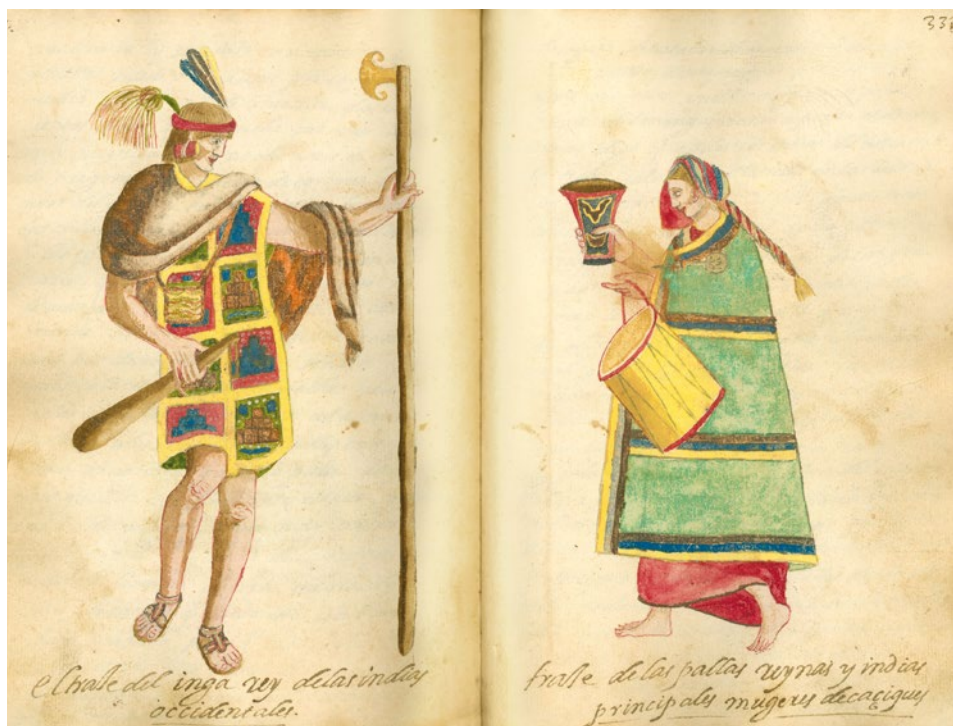 333
el traje del inga rey de las indias
occidentales.
traje de las pallas reynas y indias
principales mugeres de caçiques